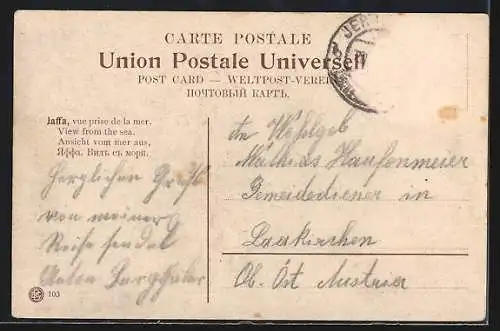 CARTE POSTALE
Union Postale Universell
POST CARD — WELTPOST-VEREI
ПОЧТОВЫЙ КАРТЬ.
JER
Jaffa, vue prise de la mer.
View from the sea.
Ansicht vom mer aus,
Яффа. Видъ съ моря.
An Wohlgeb
Mathias Haufenmeier
Gemeidediener in
Laakirchen
Ob. Öst Austria
Herzlichen Gruß
von meiner
Reise sendet
Anton
103